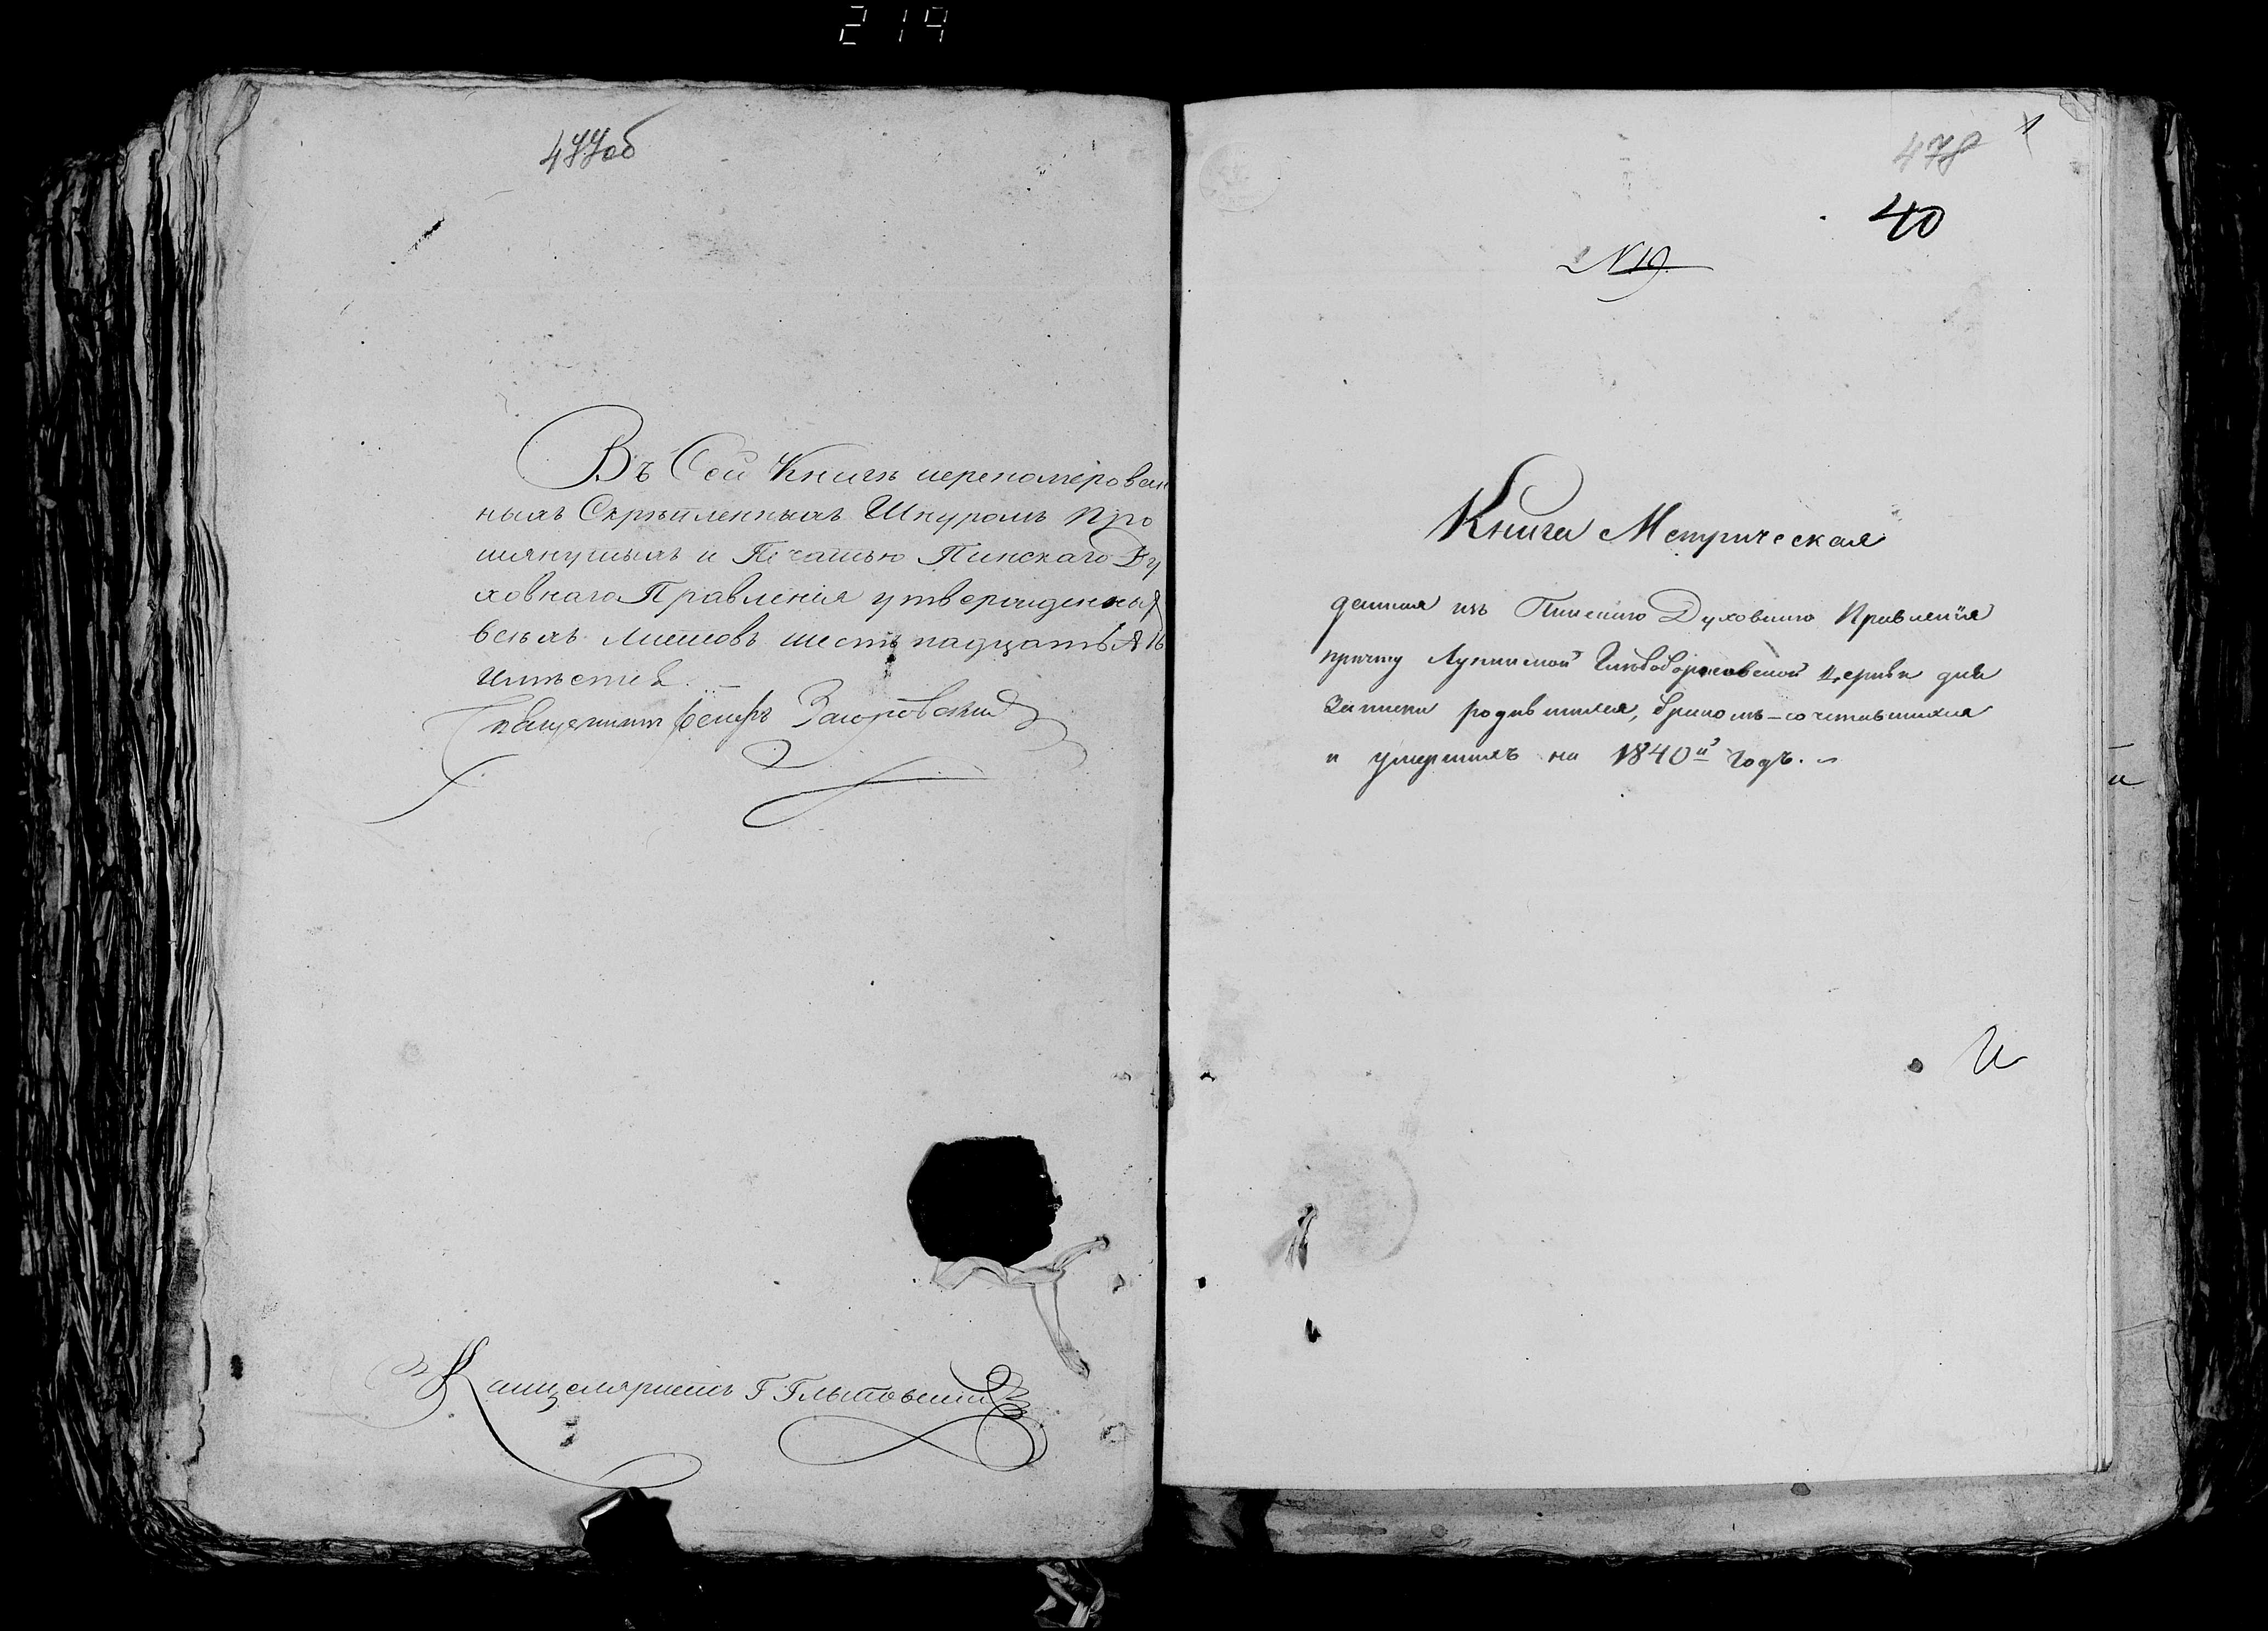 219
477об
Въ Сей Книгѣ переномерован
ныхъ Скрѣпленныхъ Шнуромъ про
шянутыхъ и Печатью Пинскаго Ду
ховнаго Правленія утвержденны
всѣхъ листовъ шестьнадцать № 16
имѣется.
Священникъ Іосифъ Загоровскій
Канцеляристъ Г
478
1
40
N 19
Книга Метрическая
данная изъ Пинскаго Духовнаго Правленія
причту Лунинской Церкви для
Записки родившихся, бракомъ-сочетавшихся
и умершихъ на 1840й годъ.
и
И